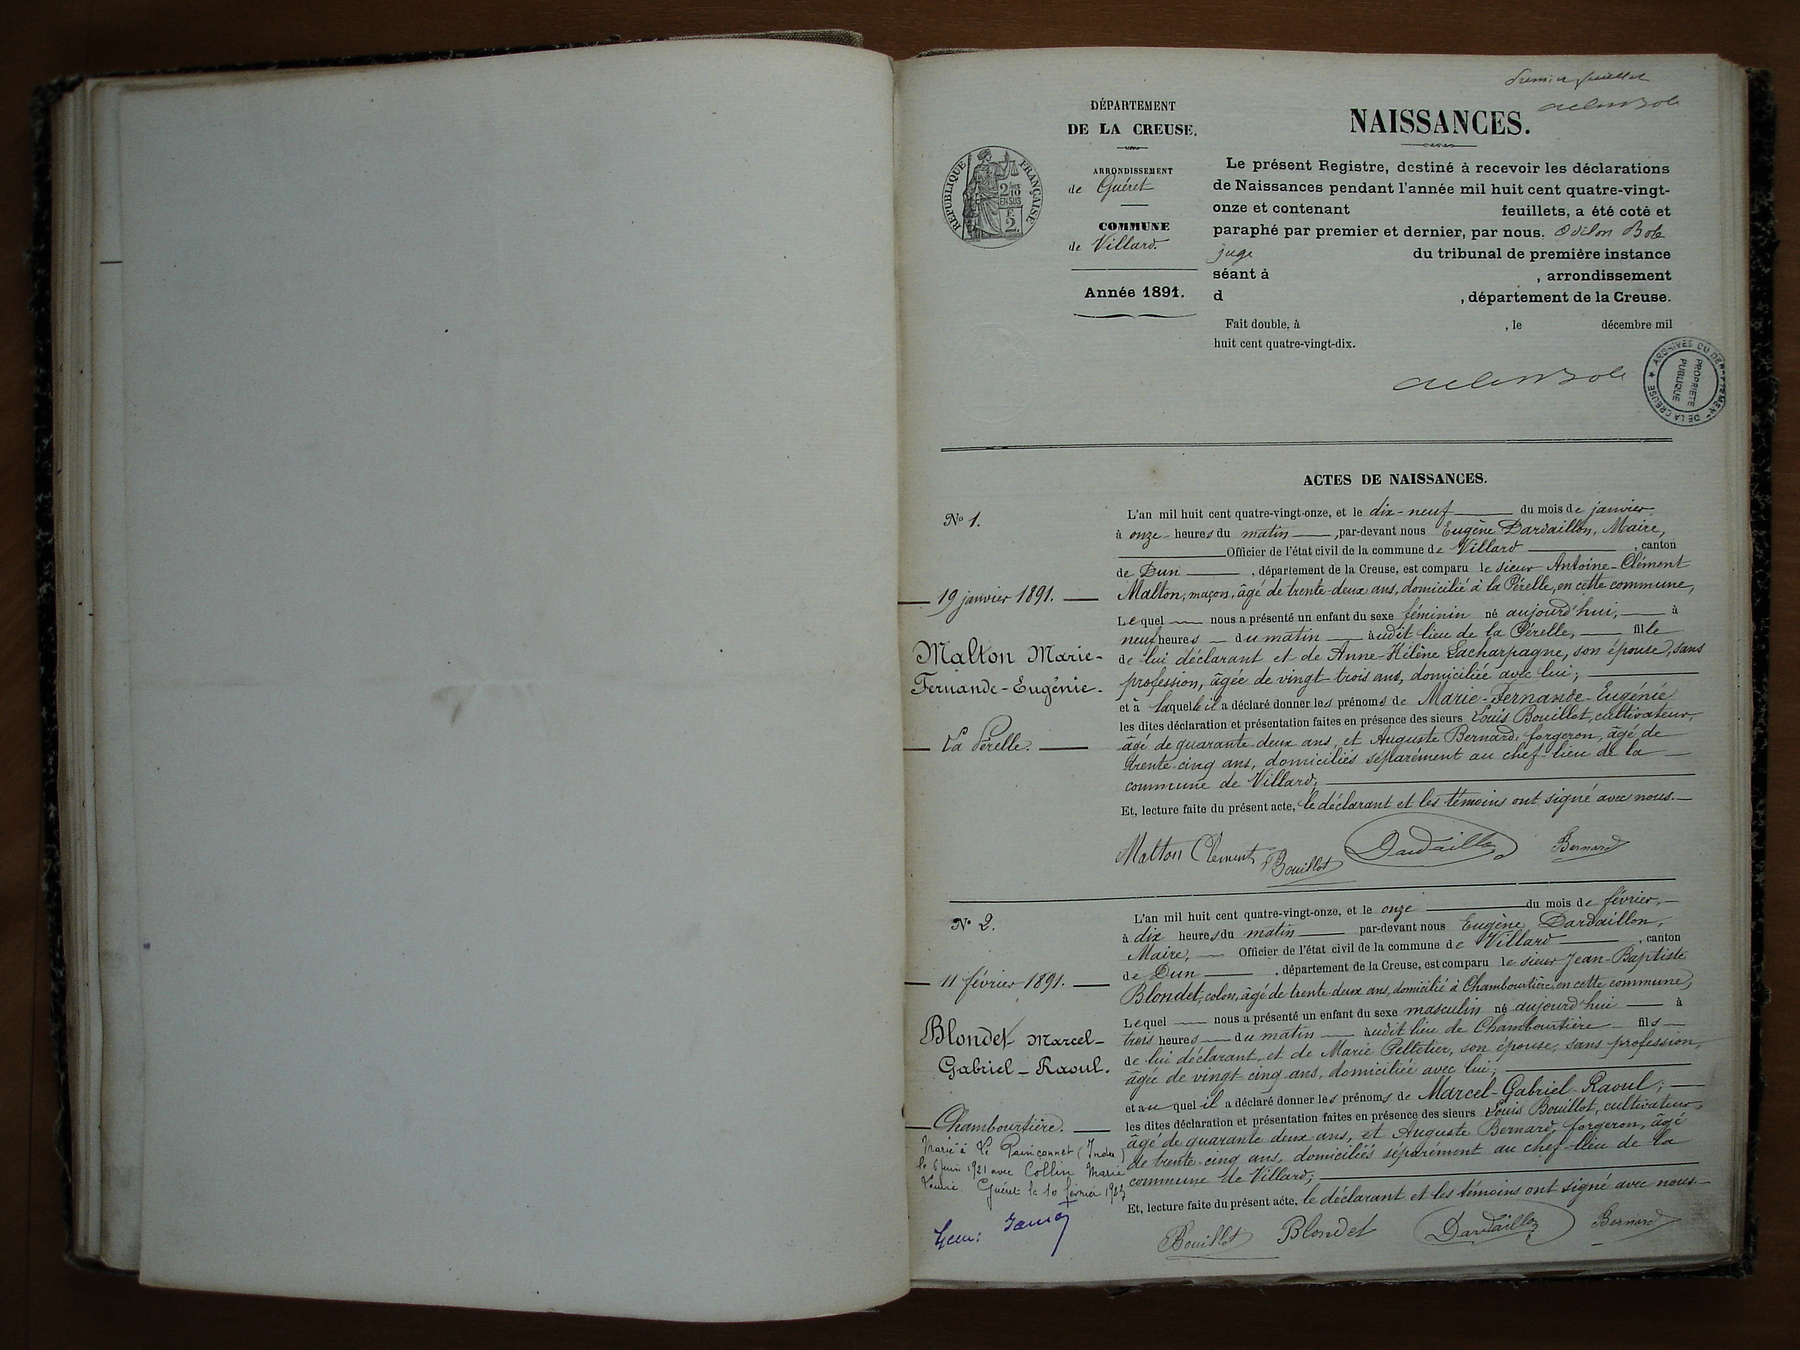 Premier feuillet
DÉPARTEMENT
DE LA CREUSE.
RÉPUBLIQUE FRANÇAISE
ARRONDISSEMENT
de Guéret
COMMUNE
de Villard
Année 1891.
NAISSANCES.
Le présent Registre, destiné à recevoir les déclarations
de Naissances pendant l'année mil huit cent quatre-vingt-
onze et contenant feuillets, a été coté et
paraphé par premier et dernier, par nous, Odilon Bole
juge du tribunal de première instance
séant à , arrondissement
d , département de la Creuse.
Fait double, à , le décembre mil
huit cent quatre-vingt-dix.
ARCHIVES DU DÉPARTEMENT DE LA CREUSE
PROPRIÉTÉ
PUBLIQUE
ACTES DE NAISSANCES.
No 1.
19 janvier 1891.
Malton Marie-
Fernande-Eugénie.
La Pérelle.
L'an mil huit cent quatre-vingt-onze, et le dix-neuf du mois de janvier
à onze heures du matin, par-devant nous Eugène Dardaillon, Maire,
Officier de l'état civil de la commune de Villard, canton
de Dun, département de la Creuse, est comparu le sieur Antoine-Clément
Malton, maçon, âgé de trente-deux ans, domicilié à la Pérelle, en cette commune,
Lequel nous a présenté un enfant du sexe féminin né aujourd'hui, à
neuf heures du matin audit lieu de la Pérelle, fille
de lui déclarant et de Anne-Hélène Lacharpagne, son épouse, sans
profession, âgée de vingt-trois ans, domiciliée avec lui;
et à laquelle il a déclaré donner les prénoms de Marie-Fernande-Eugénie
les dites déclaration et présentation faites en présence des sieurs Louis Bouillot, cultivateur,
âgé de quarante deux ans, et Auguste Bernard, forgeron, âgé de
trente-cinq ans, domiciliés séparément au chef-lieu de la
commune de Villard;
Et, lecture faite du présent acte, le déclarant et les témoins ont signé avec nous.
Malton Clement Bouillot Dardaillon Bernard
No 2.
11 février 1891.
Blondet Marcel-
Gabriel-Raoul.
Chambourtière.
Marié à Le Poinçonnet (Indre)
le 6 juin 1921 avec Collin Marie
Louise Guéret le 10 février 1927
L'an mil huit cent quatre-vingt-onze, et le onze du mois de février,
à dix heures du matin par-devant nous Eugène Dardaillon,
Maire, Officier de l'état civil de la commune de Villard, canton
de Dun, département de la Creuse, est comparu le sieur Jean-Baptiste
Blondet, colon, âgé de trente-deux ans, domicilié à Chambourtière, en cette commune,
Lequel nous a présenté un enfant du sexe masculin né aujourd'hui à
trois heures du matin audit lieu de Chambourtière fils
de lui déclarant, et de Marie Pelletier, son épouse, sans profession,
âgée de vingt-cinq ans, domiciliée avec lui;
et au quel il a déclaré donner les prénoms de Marcel-Gabriel-Raoul;
les dites déclaration et présentation faites en présence des sieurs Louis Bouillot, cultivateur,
âgé de quarante deux ans, et Auguste Bernard, forgeron, âgé
de trente-cinq ans, domiciliés séparément au chef-lieu de la
commune de Villard;
Et, lecture faite du présent acte, le déclarant et les témoins ont signé avec nous.
Bouillot Blondet Dardaillon Bernard